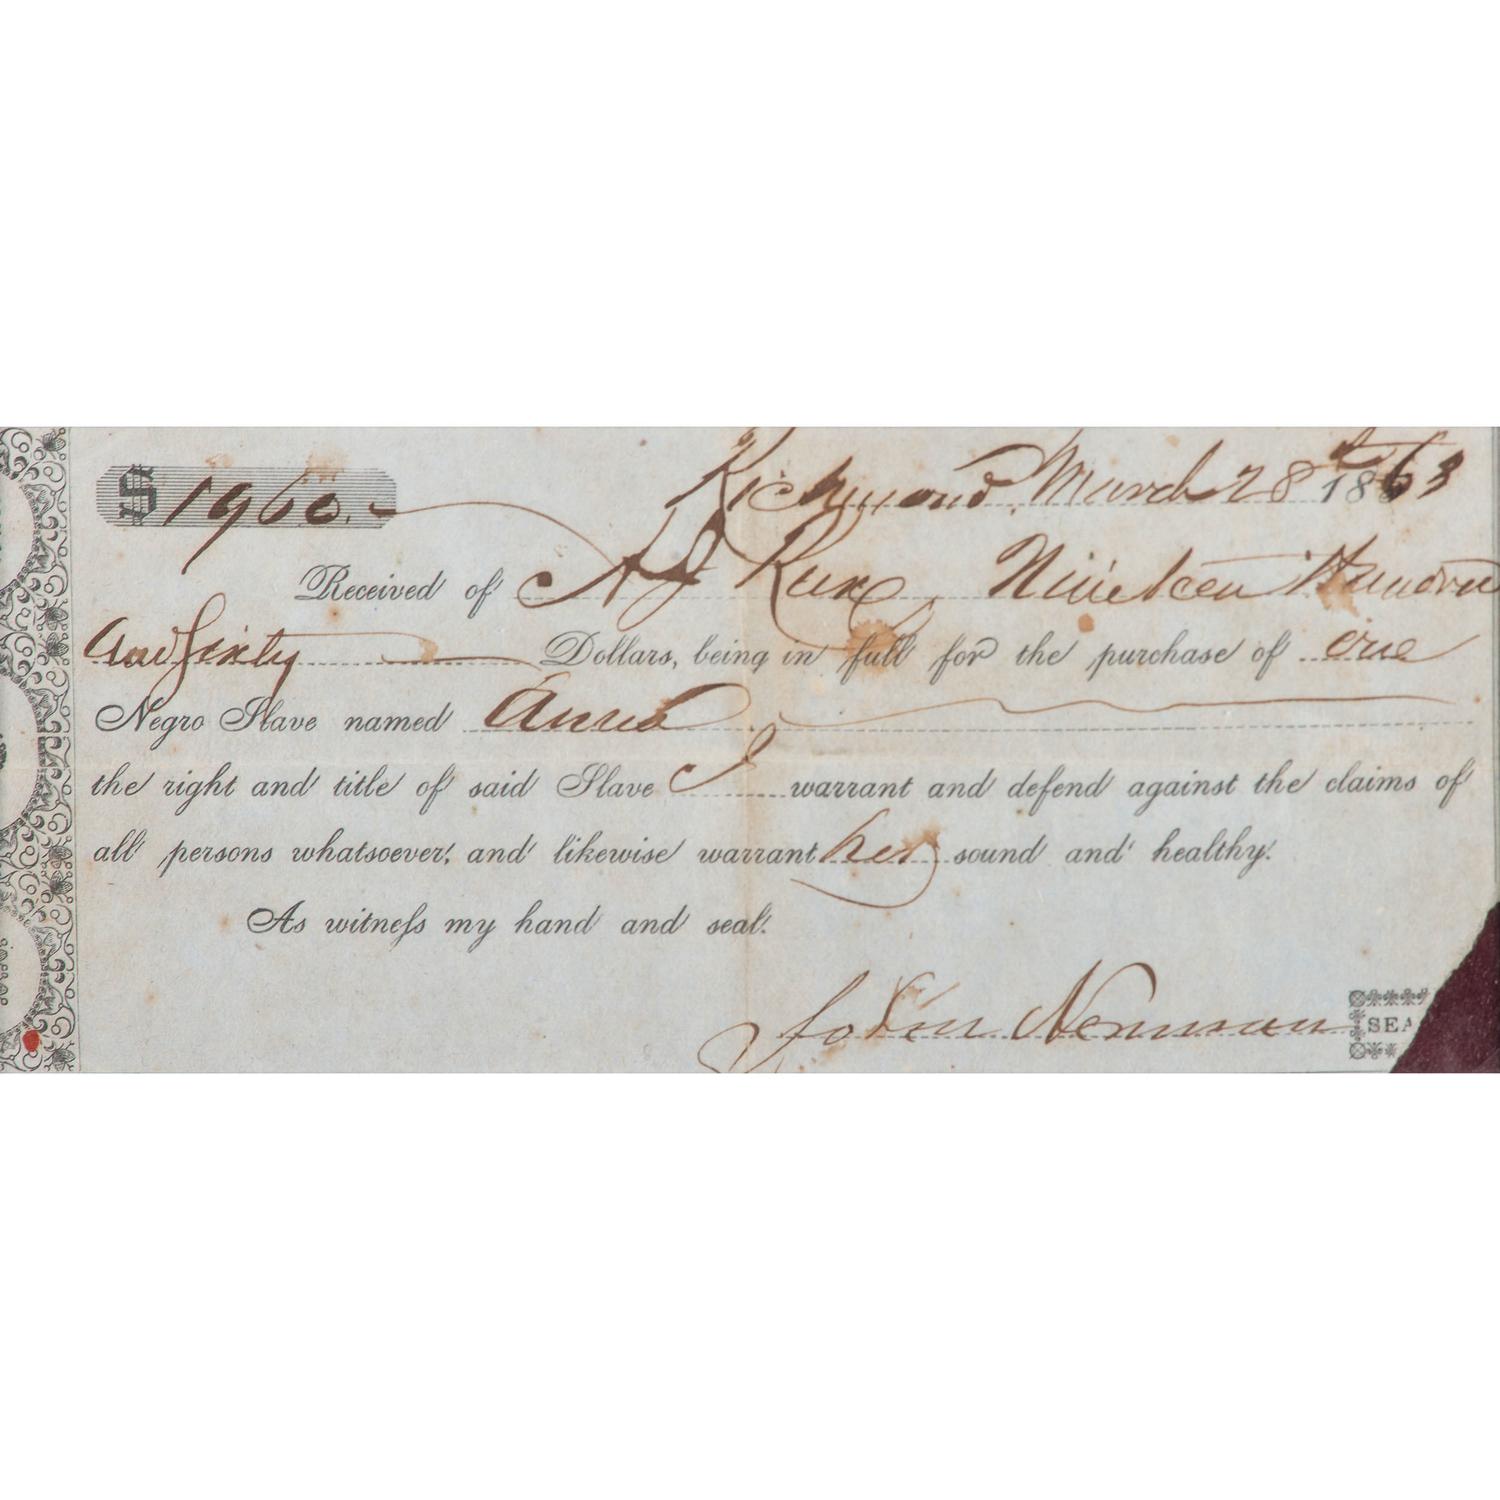 $1960.
Richmond, March 28th 1863
Received of A J Rux, Nineteen Hundred
And Sixty Dollars, being in full for the purchase of one
Negro Slave named
the right and title of said Slave I warrant and defend against the claims of
all persons whatsoever, and likewise warrant her sound and healthy.
As witness my hand and seal.
John Newman
SEA